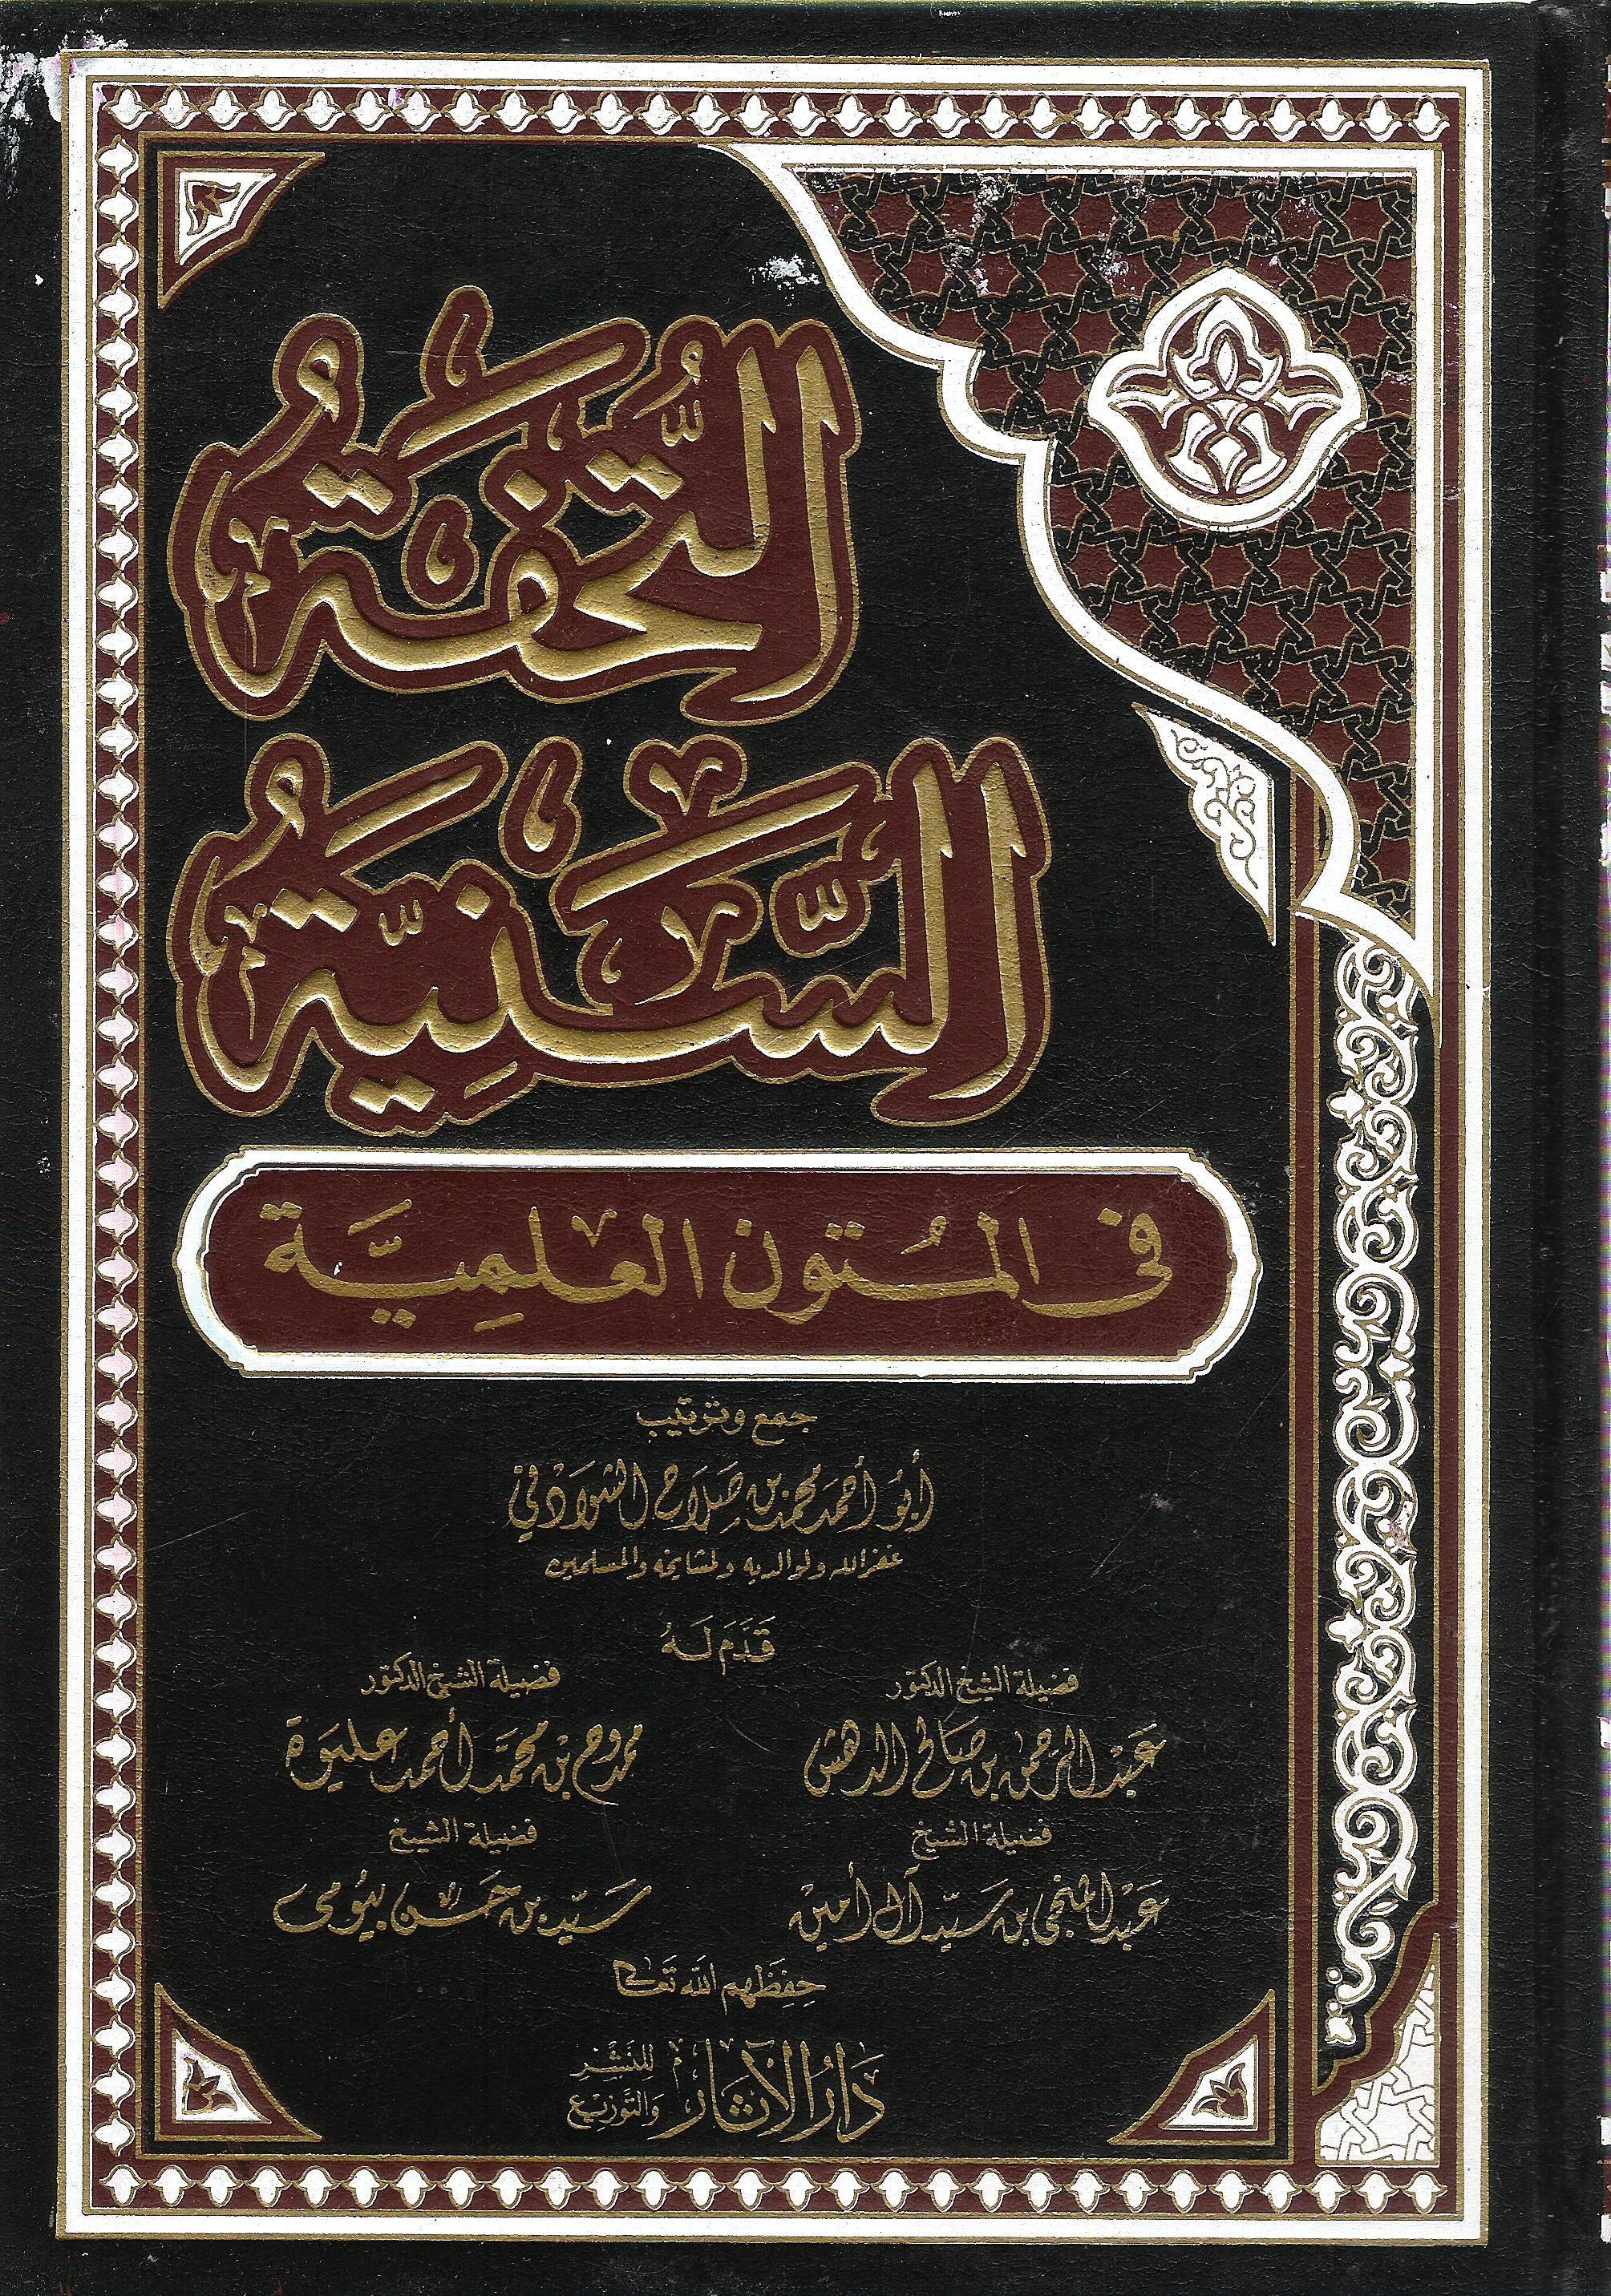 التُّحْفَةُ
السَّنِيَّةُ
في المُتون العلمِيَّة
جمع وترتيب
أبو أحمد محمد بن صلاح الشوادفي
غفر الله ولوالديه ولمشايخه والمسلمين
قَدَّمَ لَهُ
فضيلة الشيخ الدكتور
عَبْد الرحمن بن صالح الدهش
فضيلة الشيخ الدكتور
ممدوح بن محمَّد أحمد عليوة
فضيلة الشيخ
عَبْد المنجي بن سَيّد آل أمين
فضيلة الشيخ
سَيّد بن حسن بيُومي
حفِظَهم الله تَعالى
دَارُ الآثَار للنَّشْر والتَّوزيْع